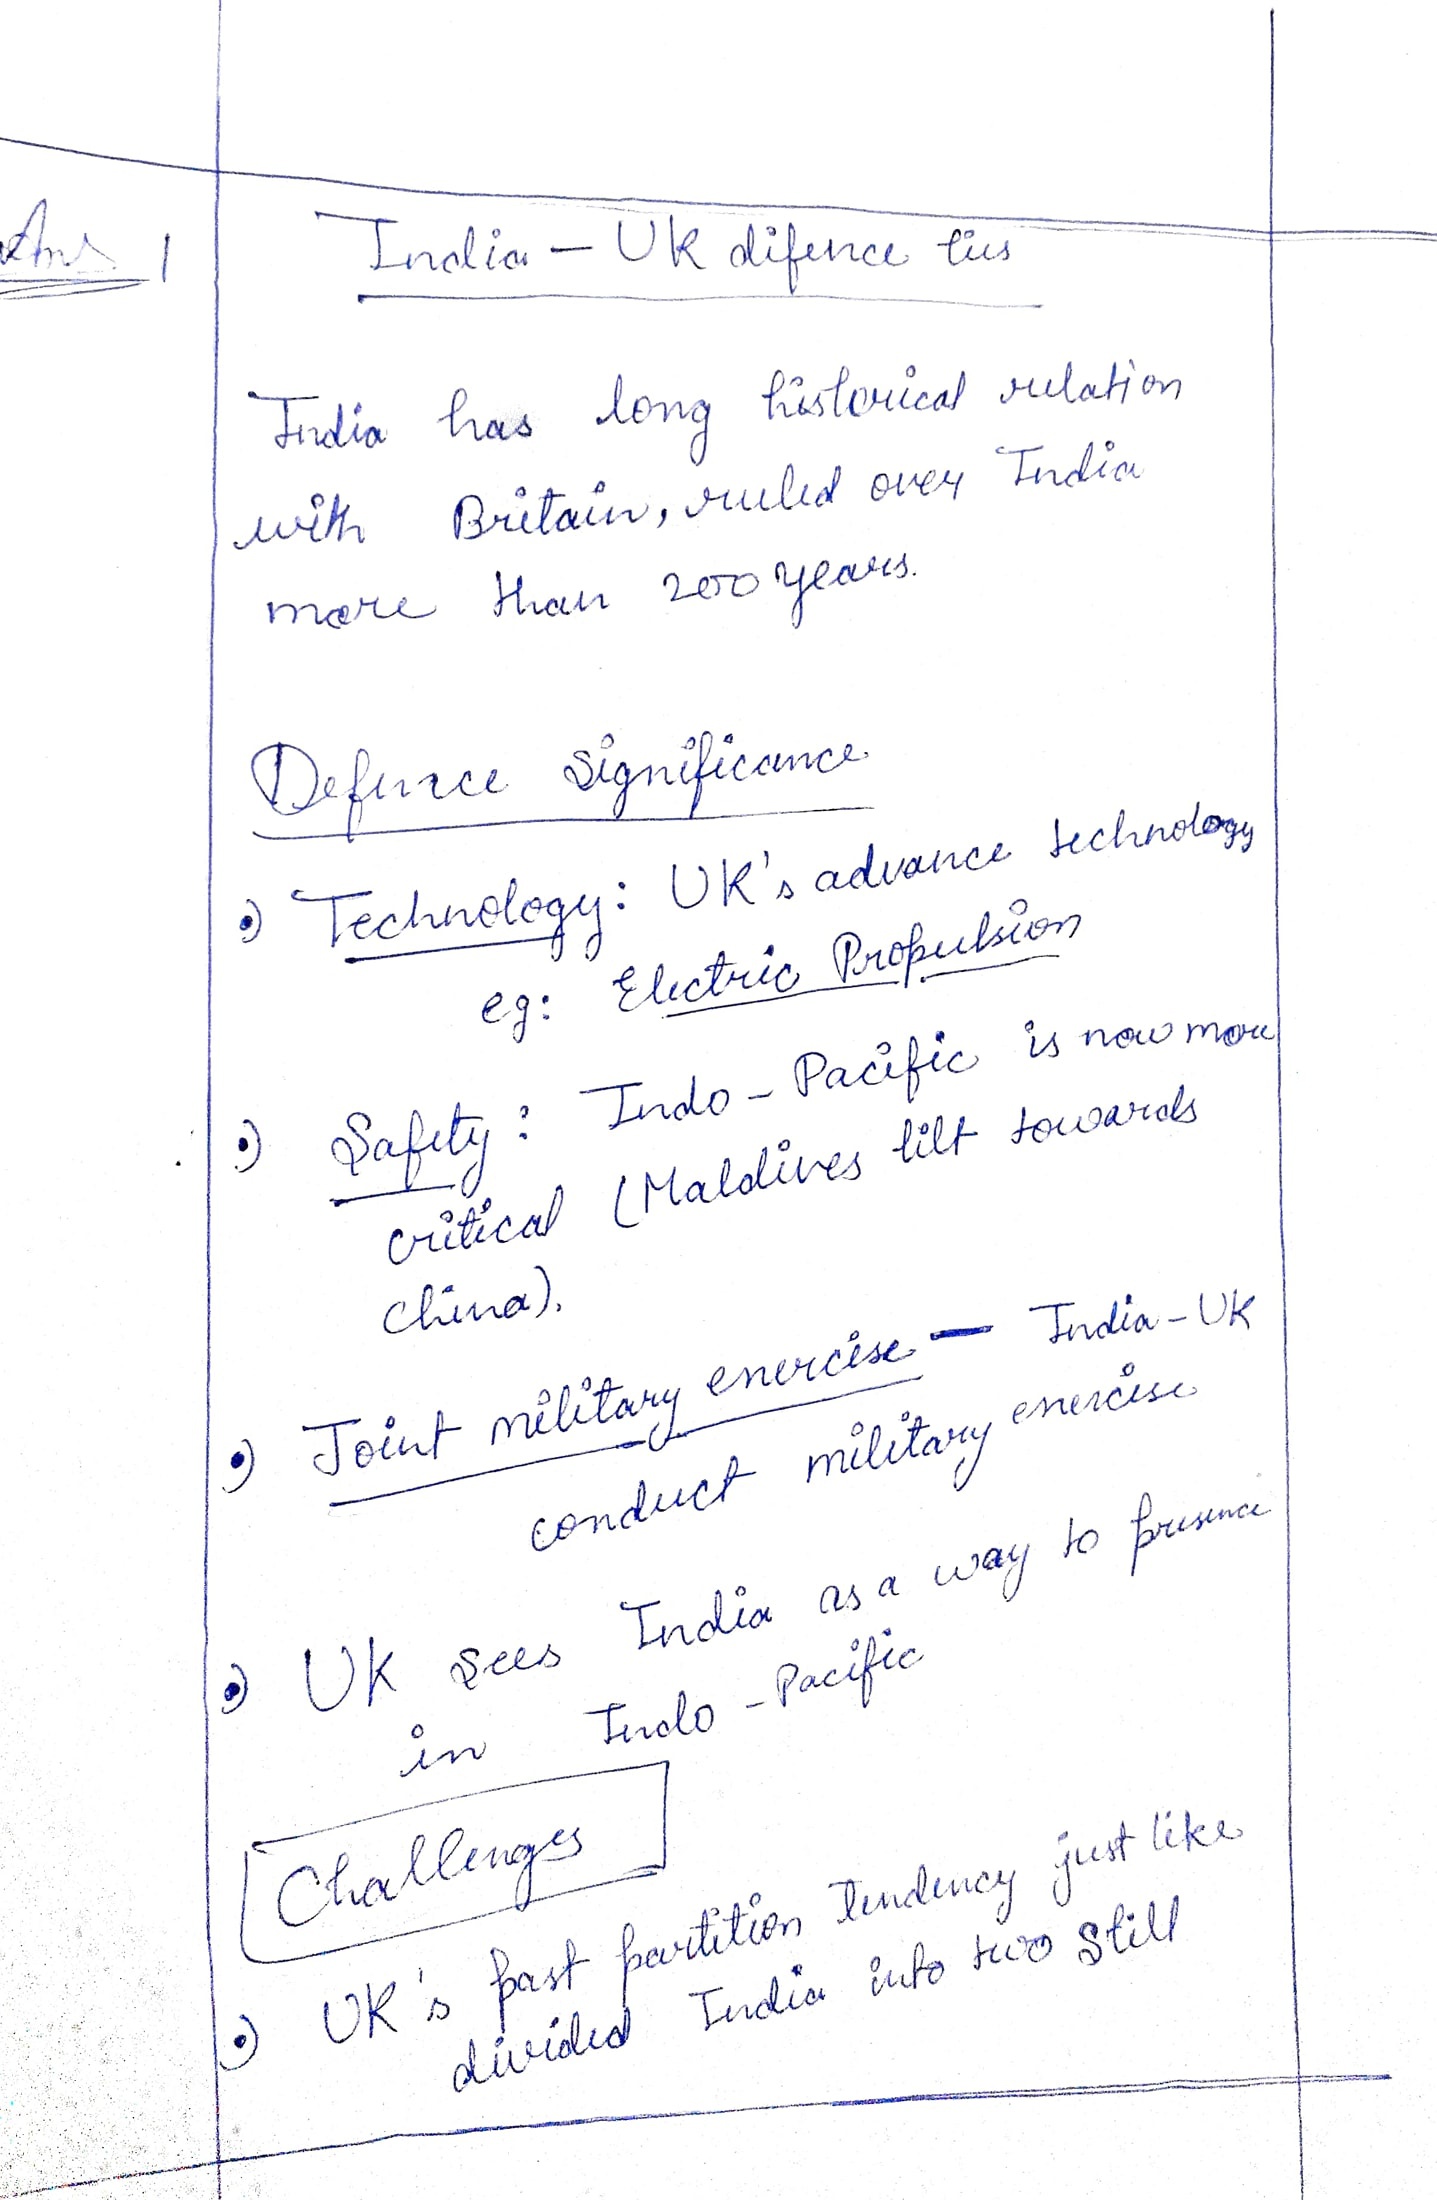 Ans 1
India - UK difence ties
India has long historical relation
with Britain, ruled over India
more than 200 years.
Defence Significance
•) Technology: UK's advance technology
eg: Electric Propulsion
•) Safety: Indo-Pacific is now more
critical (Maldives tilt towards
China).
•) Joint military exercise - India-UK
conduct military exercise
•) UK sees India as a way to presence
in Indo-Pacific
Challenges
•) UK's past partition tendency just like
divided India into two still